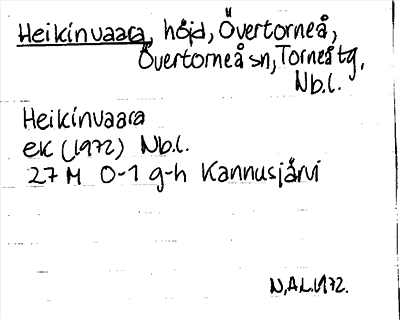 Heikinvaara, höjd, Övertorneå,
Övertorneå sn, Torneå tg,
Nb.l.
Heikinvaara
ek (1972) Nb.l.
27 M 0-1 g-h Kannusjärvi
N,AL.1972.